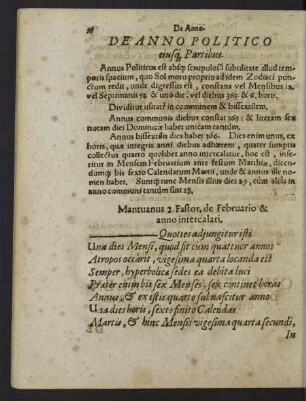 De Anno.
DE ANNO POLITICO
eiusq́; Partibus.
Annus Politicus est absq́; scrupulosâ subtilitate illud tem-
poris spacium, quo Sol motu proprio ad idem Zodiaci pun-
ctum redit, unde digressus est, constans vel Mensibus 12.
vel Septimanis 52. & una die, vel diebus 365. & 6. horis.
Dividitur usitatè in communem & bissextilem.
Annus communis diebus constat 365: & literam se-
notam diei Dominicæ habet unicam tantùm.
Annus bissextilis dies habet 366. Dies enim unus, ex
horis, quæ integris anni diebus adhærent, quater sumptis
collectus quarto quolibet anno intercalatur, hoc est, inse-
ritur in Mensem Februarium ante festum Matthiæ, dicen-
dumq́; bis sexto Calendarum Martii, unde & annus ille no-
men habet. Suntq́; tunc Mensis illius dies 29, cùm aliàs in
anno communi tantùm sint 28.
Mantuanus 2. Fastor. de Februario &
anno intercalari.
Quoties adjungitur isti
Una dies Mensi, quod fit cùm quattuor annos
Atropos occârit, vigesima quarta locanda est
Semper, hyperbolica sedes ea debita luci
Præter enim bis sex Menses, sex continet horas
Annus, & ex istis quarto subnascitur anno
Una dies horis, sexto finito Calendas
Martis, & hinc Mensis vigesima quarta secundi,
In